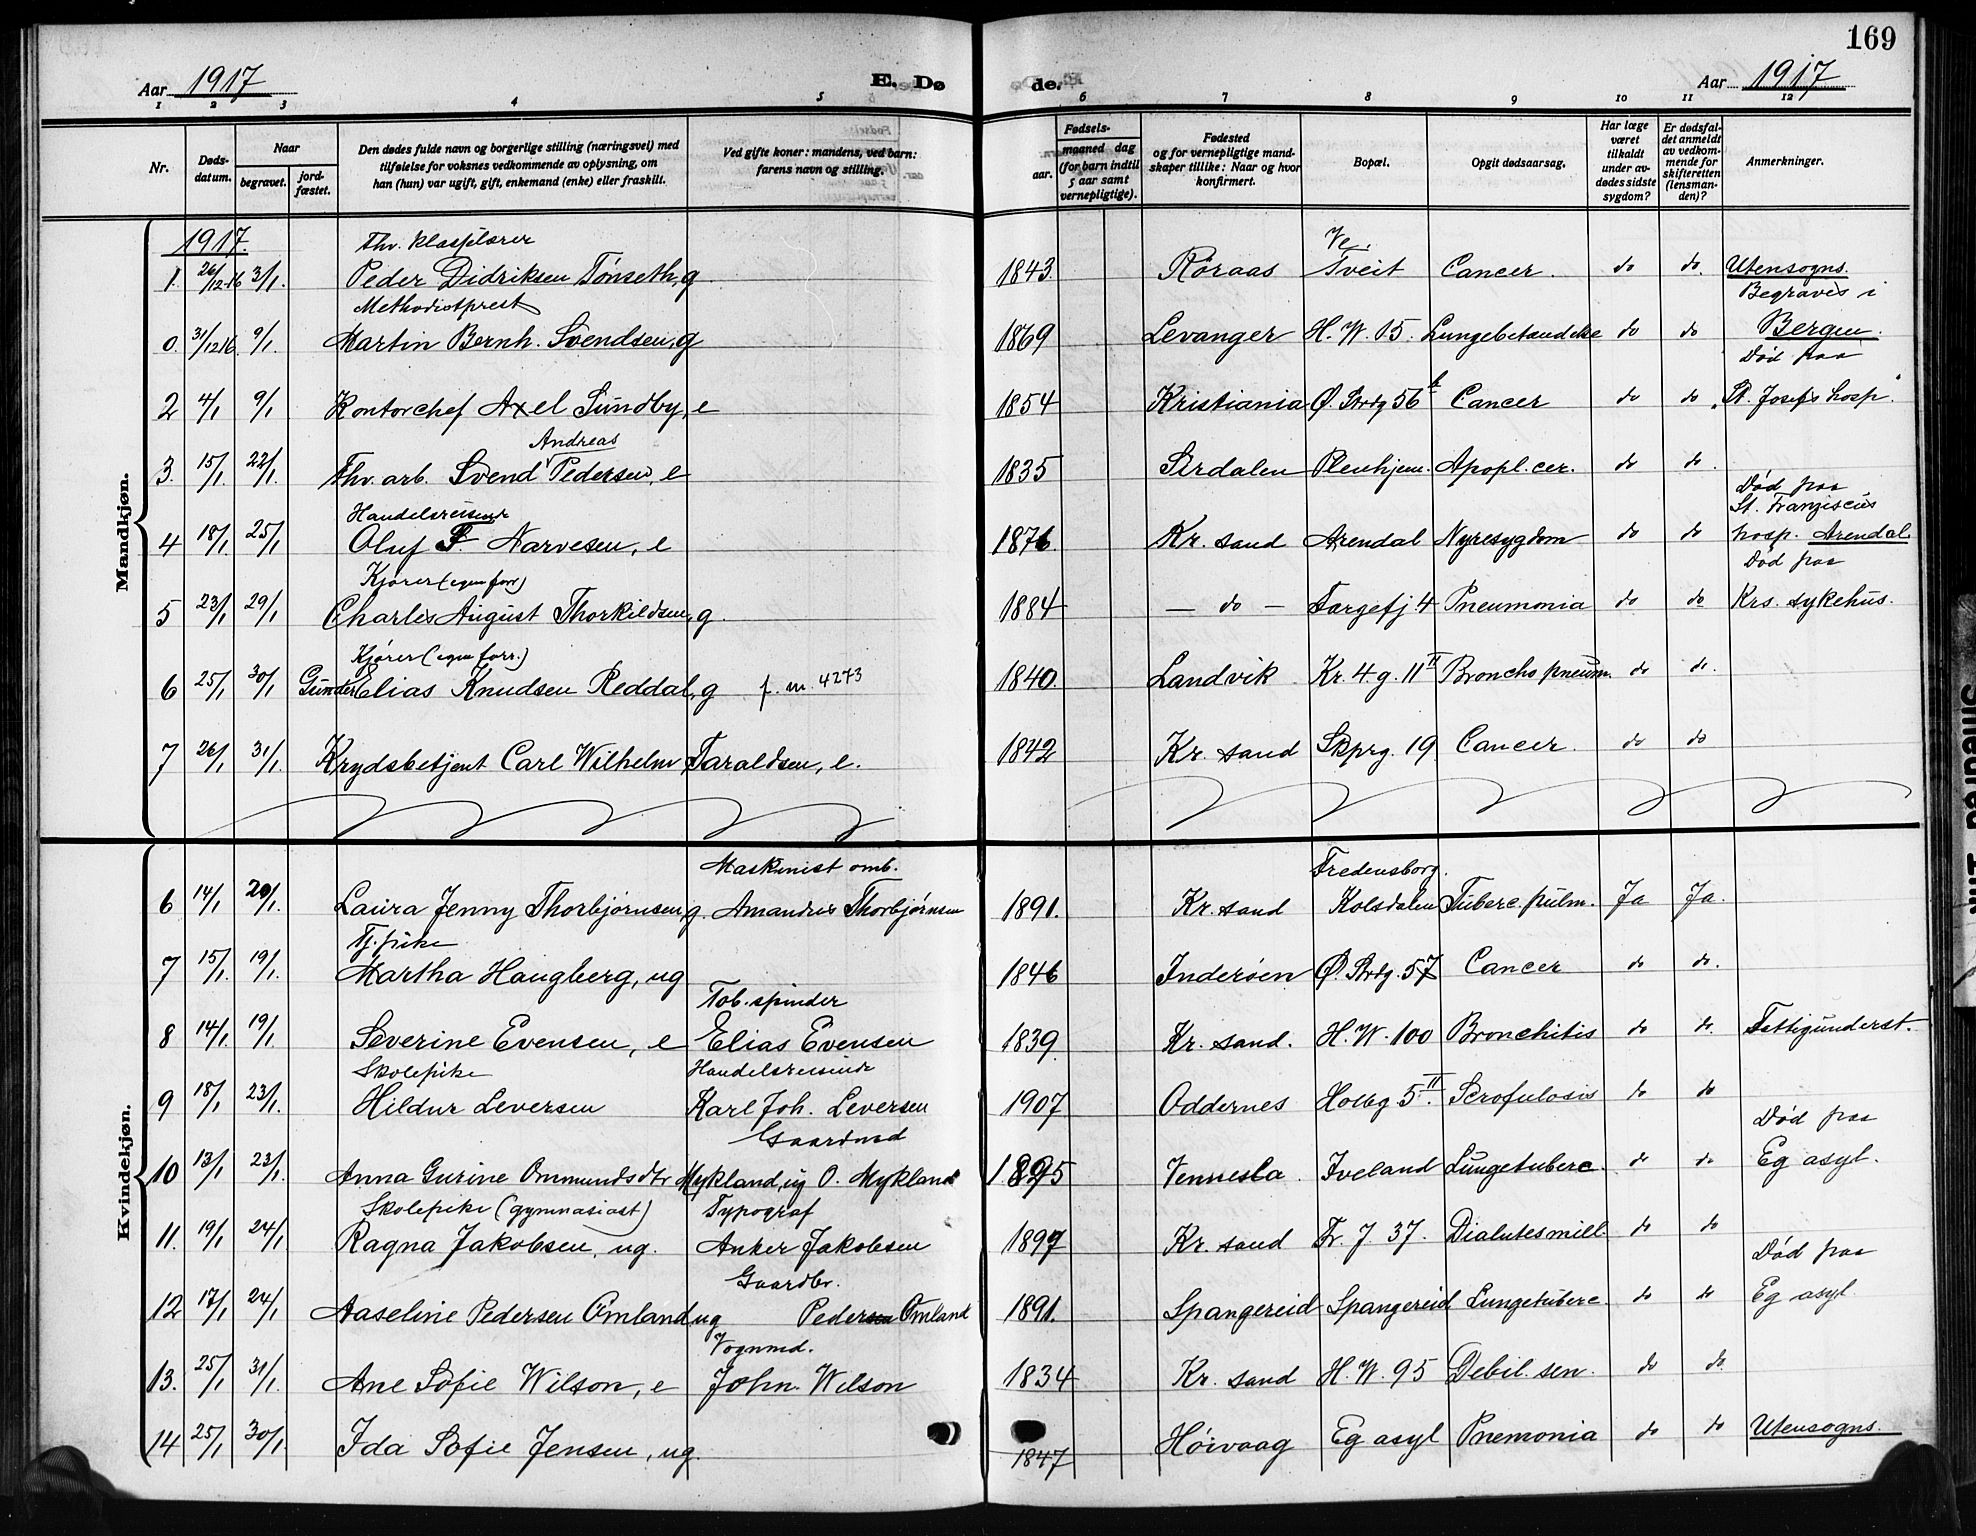 169
Aar 1917 E. Dø de. Aar 1917
1 2 3 4 5 6 7 8 9 10 11 12
Nr.
Døds-
datum.
Naar
begravet.
jord-
fæstet.
Den dødes fulde navn og borgerlige stilling (næringsvei) med
tilføielse for voksnes vedkommende av oplysning, om
han (hun) var ugift, gift, enkemand (enke) eller fraskilt.
Ved gifte koner: mandens, ved barn:
farens navn og stilling.
Fødsels-
aar.
maaned dag
(for barn indtil
5 aar samt
vernepligtige).
Fødested
og for vernepligtige mand-
skaper tillike: Naar og hvor
konfirmert.
Bopæl.
Opgit dødsaarsag.
Har læge
været
tilkaldt
under av-
dødes sidste
sygdom?
Er dødsfal-
det anmeldt
av vedkom-
mende for
skifteretten
(lensman-
den)?
Anmerkninger.
Mandkjøn.
1917.
Fhv. klasselærer
Ve.
1. 26/12-16 3/1. Peder Didriksen Tønseth, g 1843. Röraas Tveit Cancer. do do. Utensogns.
Methodistprest
Begraves i
0. 31/12 16 9/1. Martin Bernh. Svendsen, g 1869 Levanger H. W. 15. Lungebetændelse do do Bergen.
Død paa
2 4/1 9/1 Kontorchef Axel Sundby, e 1854 Kristiania Ø. Strdg 56 b Cancer do do "St. Josefs hosp."
Andreas
3. 15/1. 22/1. Fhv. arb. Svend Pedersen, e 1835 Sirdalen Pleiehjem. Apopl. cer. do do.
Død paa
St. Franziscus
Handelsreisende
4 18/1. 25/1 Oluf F. Narvesen, e 1876. Kr. sand Arendal Nyresygdom do do hosp. Arendal
Kjører (egen forr)
Død paa
5 23/1 29/1. Charles August Thorkildsen, g. 1884 — do — Torgefj. 4 Pneumonia do do Krs. sykehus.
Kjører (egen forr.)
6 25/1 30/1 Gunder Elias Knudsen Reddal, g f. m. 4273 1840. Landvik Kr. 4 g. 11 II Broncho pneum. do do.
7 26/1 31/1. Krydsbetjent Carl Wilhelm Taraldsen, e. 1842 Kr. sand Skprg. 19 Cancer. do do
Kvindekjøn.
Maskinist omb.
Fredensborg.
6 14/1 20/1. Laura Jenny Thorbjørnsen, g. Amandus Thorbjørnsen 1891. Kr. sand Kolsdalen Tuberc. pulm. Ja Ja.
Tj. pike
7 15/1. 19/1. Martha Haugberg, ug 1846 Inderøen Ø. Strdg. 57 Cancer do do.
Tob. spinder
8 14/1 19/1. Severine Evensen, e Elias Evensen 1839. Kr. sand. H. W. 100 Bronchitis do do. Fattigunderst.
Skolepike Handelsreisende
9 18/1 23/1. Hildur Leversen Karl Joh. Leversen 1907 Oddernes Holbg 5 II. Scrofulosis do do
Gaardmd
Død paa
10 13/1 23/1. Anna Gurine Ommundsdtr Mykland, ug O. Mykland 1895 Vennesla. Iveland Lungetuberc. do do Eg asyl.
Skolepike (gymnasiast) Typograf
11. 19/1 24/1 Ragna Jakobsen, ug. Anker Jakobsen 1897 Kr. sand Fr. J 37. Diabetes mill. do do
Gaardbr.
Død paa
12 17/1 24/1 Aaseline Pedersen Omland ug Pedersen Omland 1891. Spangereid Spangereid Lungetuberc. do do Eg asyl.
Vognmd.
13. 25/1 31/1. Ane Sofie Wilson, e John Wilson 1834 Kr. sand H. W. 95 Debil. sen. do do
14 25/1 30/1. Ida Sofie Jensen, ug. 1847 Høivaag Eg asyl Pnemonia do do Utensogns.